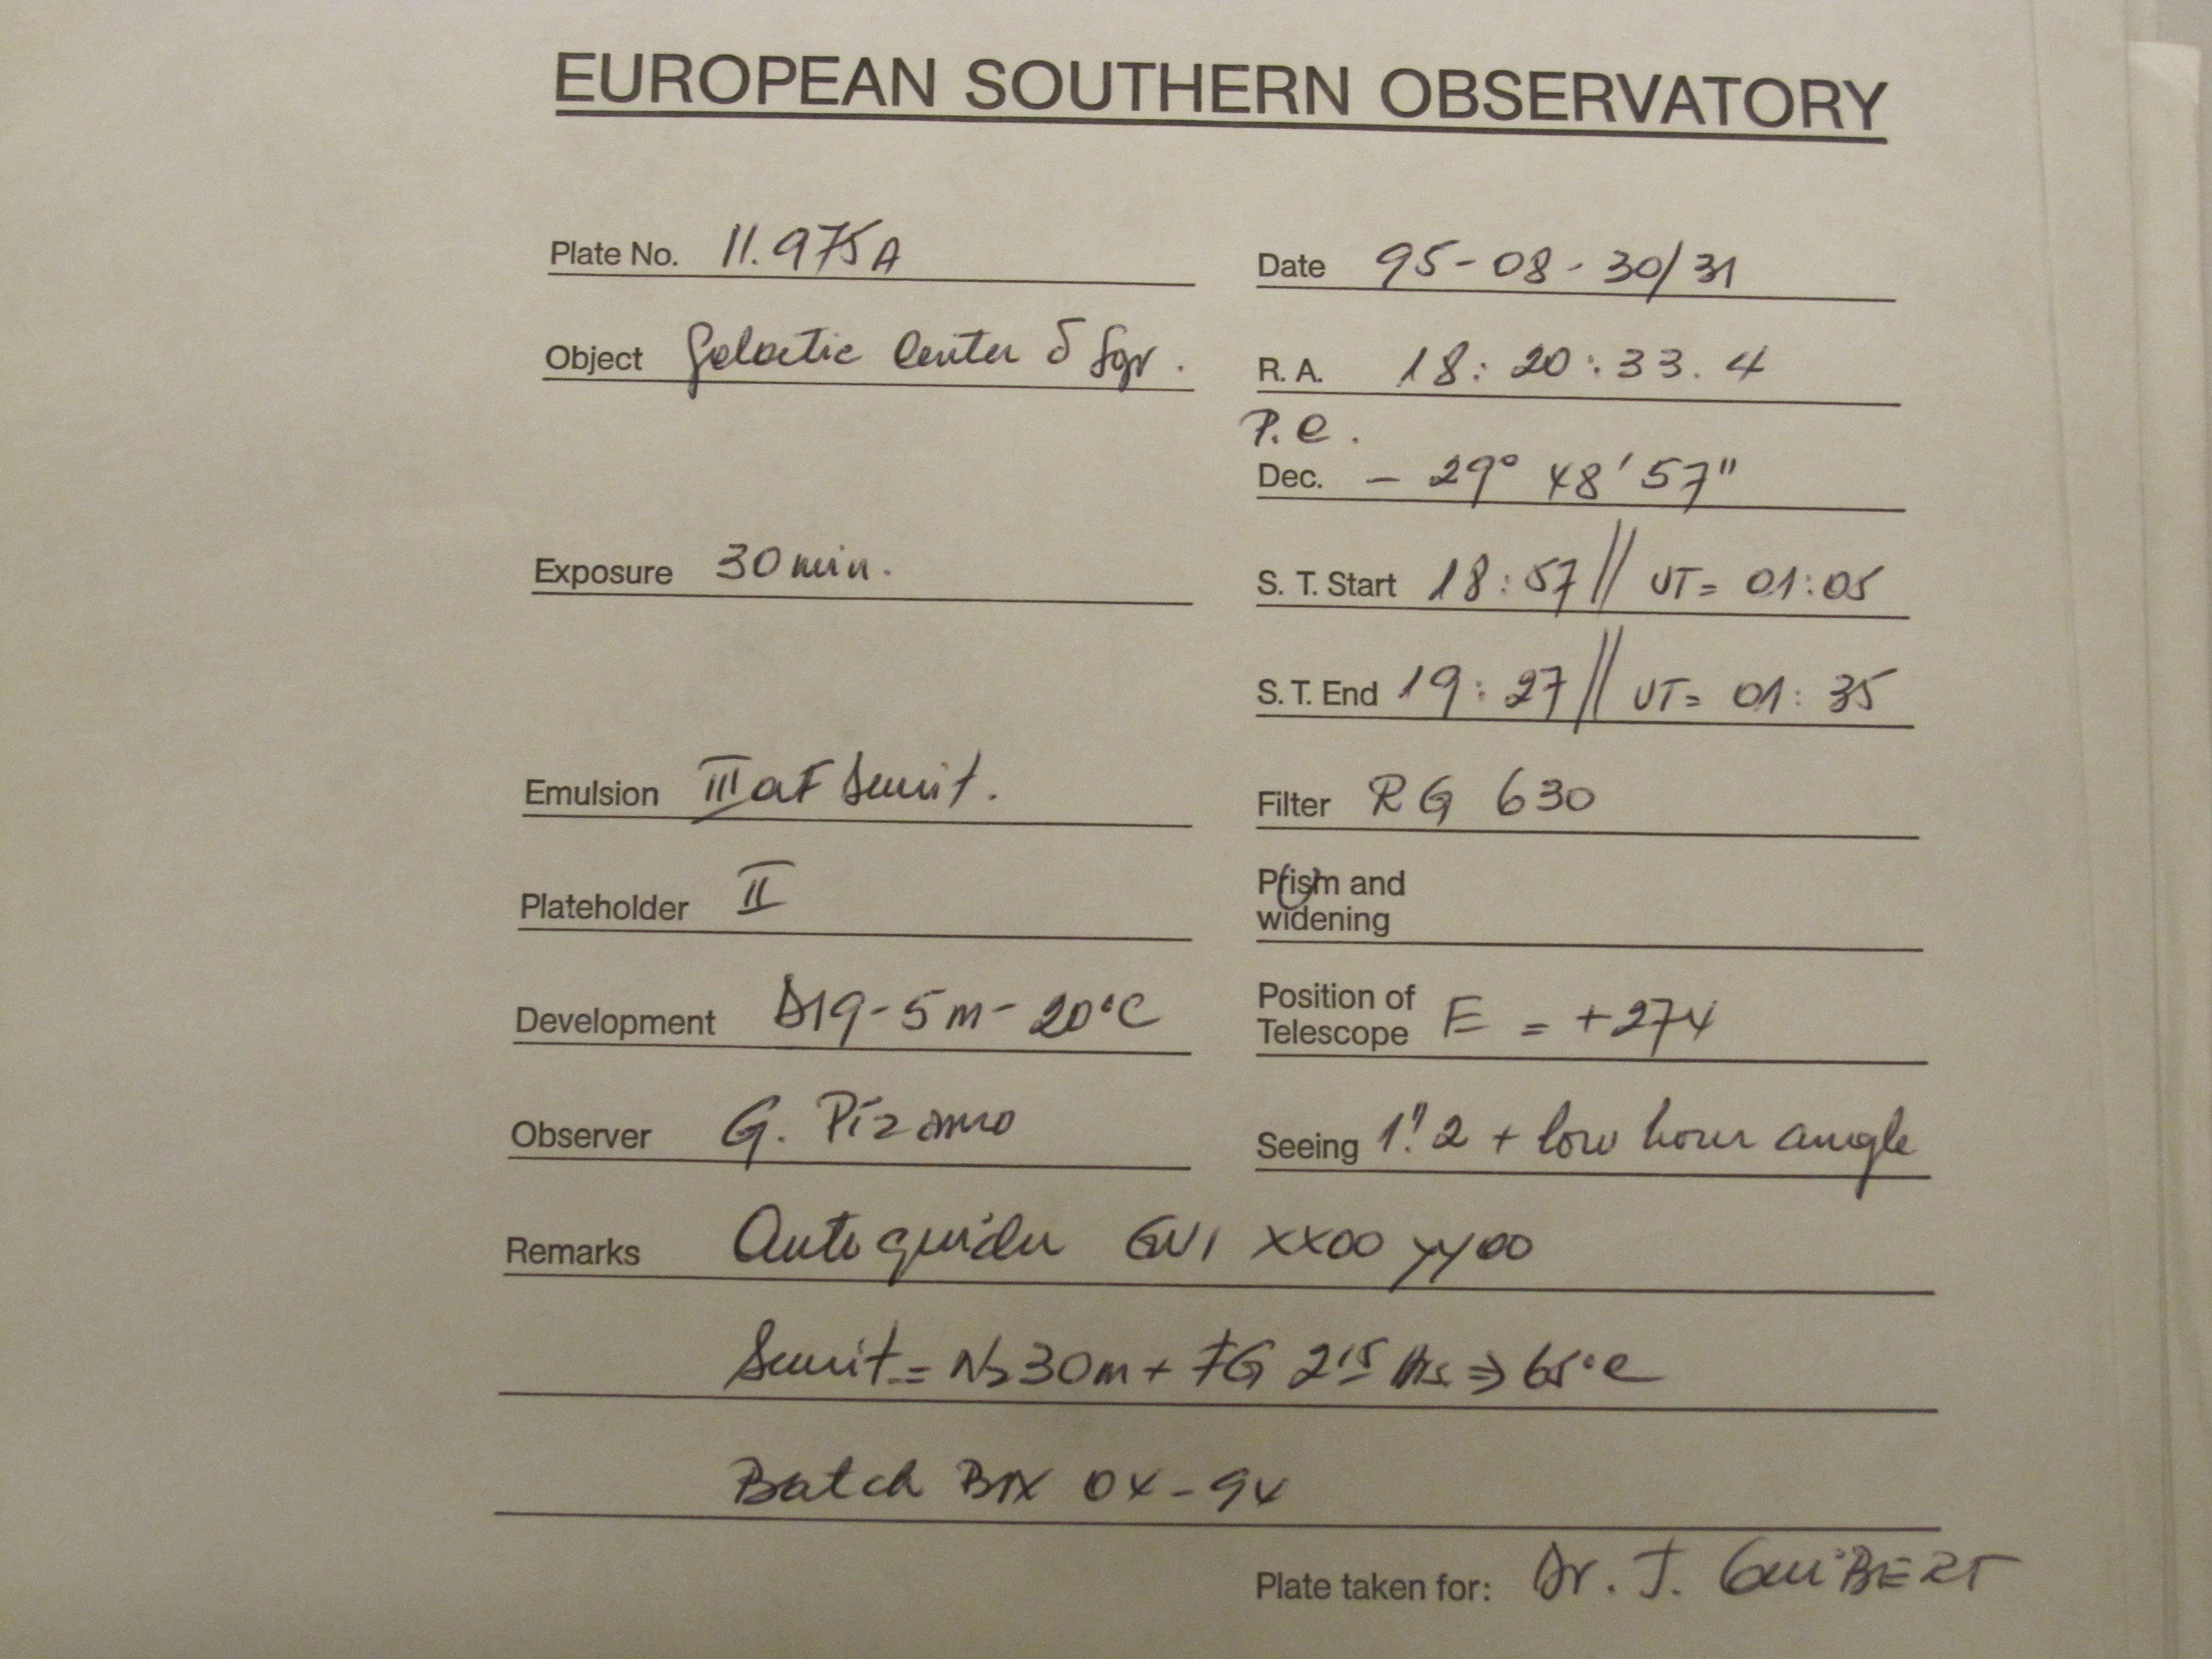 EUROPEAN SOUTHERN OBSERVATORY
Plate No. 11.975A
Date 95-08-30/31
Object Galactic Center δ Sgr.
R. A. 18:20:33.4
P.e.
Dec. -29° 48' 57"
Exposure 30 min.
S. T. Start 18:57 // UT= 01:05
S. T. End 19:27 // UT= 01:35
Emulsion IIIaF Sensit.
Filter RG 630
Plateholder II
Prism and
widening
Development D19-5m-20°C
Position of
Telescope E = +274
Observer G. Pizarro
Seeing 1".2 + low hour angle
Remarks Autoguider GV1 XX00 YY00
Sensit.= N2 30m + FG 2 15 Hs. ⇒ 65°C
Batch Box 04-94
Plate taken for: Dr. J. GuiBERT